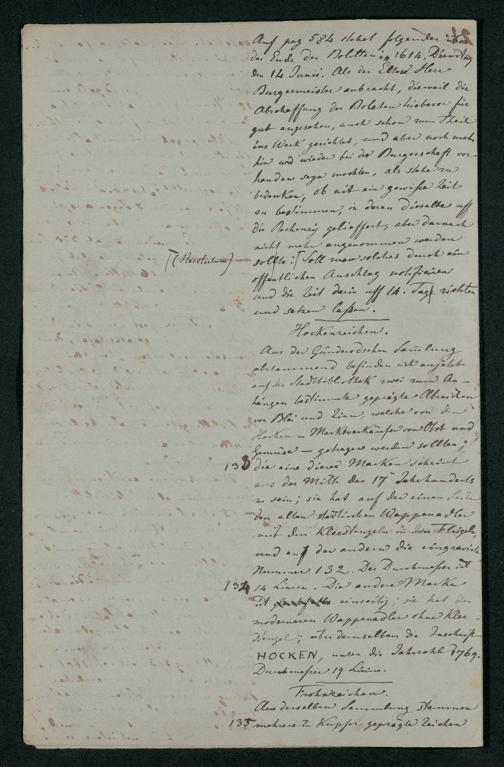 Auf pag 584 stehet folgendes über
das Ende der Boletten in 1614. Dienstag
den 14 Junii. Als der Elter Herr
Burgermeister anbracht, dieweil die
Abschaffung der Boleten hiebevor für
gut angesehen, auch schon zum Theil
ins Werk gerichtet, und aber noch mehr
hin und wieder bei der Burgerschaft vor-
handen seyn mochten, als stehe zu
bedenken, ob nit ein gewisse Zeit
zu bestimmen in deren dieselbe uff
die Recheney geliefert, aber darnach
nicht mehr angenommen werden
sollte: [Soll man solches durch ein
[(Resolutum)
öffentlichen Anschlag notificiren
und die Zeit darin uff 14. Tag richten
und setzen laßen.
Hockenzeichen.
Aus der Günderodschen Samlung
abstammend befinden sich anjetzt
auf der Stadtbibliothek zwei zum An-
hängen bestimmte geprägte
von Blei und Zinn, welche von den
Hocken – Marktverkäufer von Obst und
Gemüse – getragen werden sollten;
133 die eine dieser Marken scheint
aus der Mitte des 17 Jahrhunderts
zu sein; sie hat auf der einen Seite
den alten städtischen Wappenadler
mit den Kleestengeln in den Flügeln
und auf der andern die eingravirte
Nummer 132. Der Durchmesser ist
134 14 Linien. Die andere Marke
ist einseitig; sie hat den
moderneren Wappenadler ohne Klee-
stengel; über demselben die Inschrift
HOCKEN, unten die Jahrzahl 1769.
Durchmesser 19 Linien.
Frohnzeichen.
Aus derselben Sammlung stammen
135 mehrere in Kupfer geprägte Zeichen